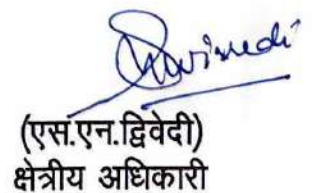 Dwivedi
(एस.एन.द्विवेदी)
क्षेत्रीय अधिकारी